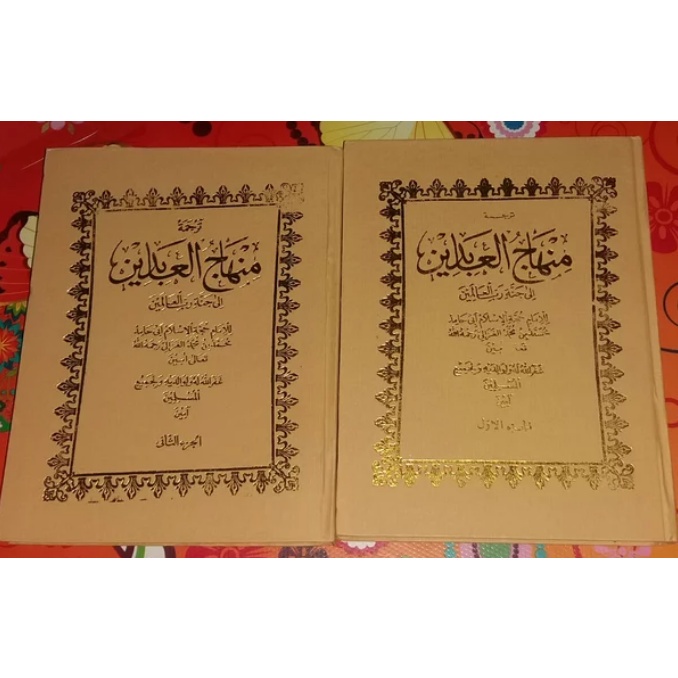 ترجمة
منهاج العابدين
إلى جنة رب العالمين
للإمام حجة الإسلام أبي حامد
محمد بن محمد الغزالي رحمه الله
تعالى آمين
غفر الله له ولوالديه ولجميع
المسلمين
آمين
الجزء الثاني
ترجمة
منهاج العابدين
إلى جنة رب العالمين
للإمام حجة الإسلام أبي حامد
محمد بن محمد الغزالي رحمه الله
غفر الله له ولوالديه ولجميع
المسلمين
آمين
الجزء الأول